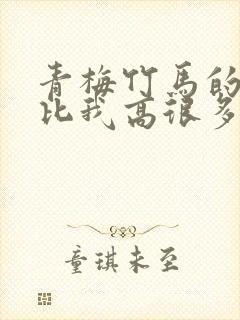 青梅竹马的
比我高很多
童琪未至